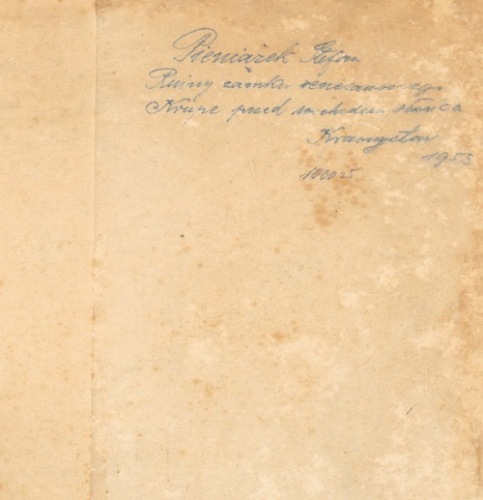 Pieniążek Stefan
Ruiny zamku renesansowego
Krupe przed zachodem słońca
Krasnystaw
1953
1000 zł